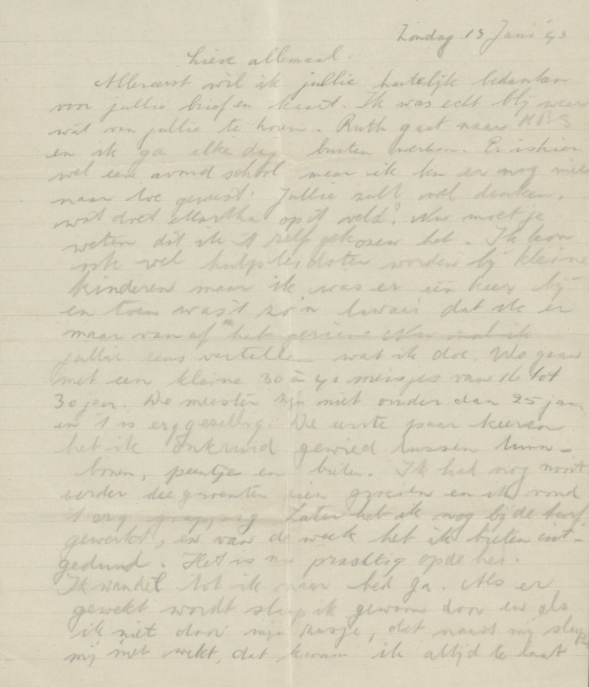 Zondag 13 Juni '43
Lieve allemaal.
Allereerst wil ik jullie hartelijk bedanken
voor jullie brief en kaart. Ik was echt blij weer
wat van jullie te horen. Ruth gaat naar HBS
en ik ga elke dag buiten werken. Er is hier
wel een avond school maar ik ben er nog niet
naar toe geweest. Jullie zult wel denken,
wat doet Martha op 't veld? Nu moet je
weten dat ik 't zelf gekozen heb. Ik kon
ook wel hulpleidster worden bij kleine
kinderen maar ik was er een keer bij
en toen was 't zo'n lawaai dat ik er
maar van af Nu zal ik
jullie eens vertellen wat ik doe. We gaan
met een kleine 30 à 40 meisjes van 16 tot
30 jaar. De meeste zijn niet ouder dan 25 jaar
en 't is erg gezellig. De eerste paar keer
heb ik Onkruid gewied tussen tuin-
bonen, peentjes en bieten. Ik had nog nooit
eerder die groenten zien groeien en ik vond
't erg grappig. Later heb ik nog bij de turf
gewerkt, en van de week heb ik bieten uit-
gedund. Het is nu prachtig op de hei.
Ik wandel tot ik naar bed ga. Als er
gewekt wordt slaap ik gewoon door en als
ik niet door mijn zusje, dat naast mij slaapt
mij niet wekt, dat kwam ik altijd te laat